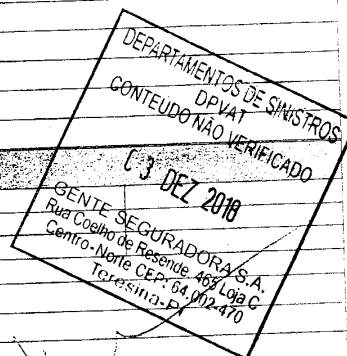 DEPARTAMENTOS DE SINISTROS
DPVAT
CONTEÚDO NÃO VERIFICADO
03 DEZ 2018
GENTE SEGURADORA S.A.
Rua Coelho de Resende, 465 Loja C
Centro-Norte CEP: 64.002-470
Teresina-PI